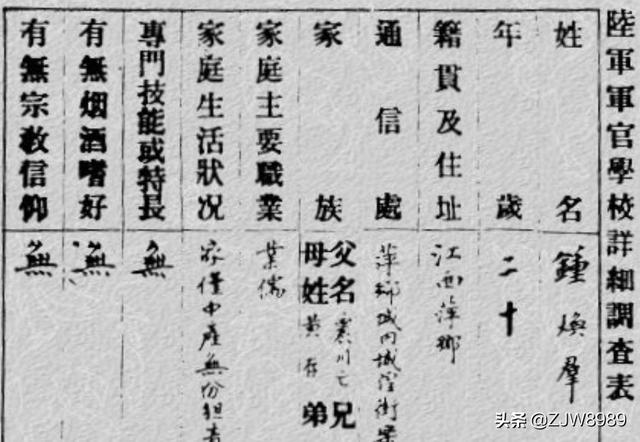 陸軍軍官學校詳細調查表
姓名 鍾煥羣
年歲 二十
籍貫及住址 江西萍鄉
通信處 萍鄉城內城隍街
家族 父名震川亡 兄
母姓黄存 弟
家庭主要職業 業儒
家庭生活狀况 家僅中產無份担
專門技能或特長 無
有無烟酒嗜好 無
有無宗教信仰 無
头条 @ZJW8989